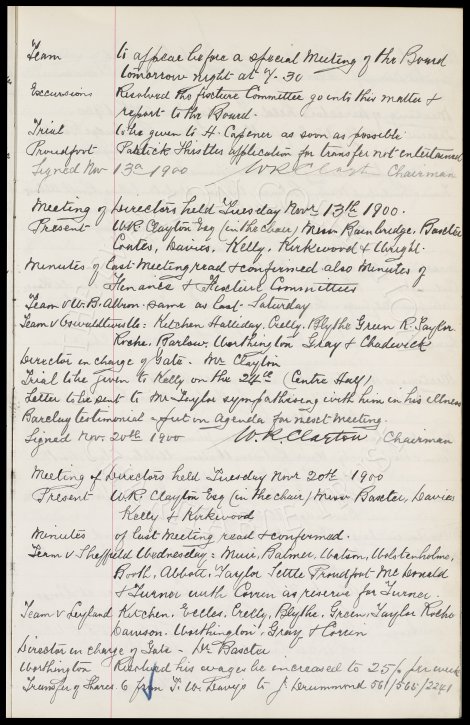 Team to appear before a special Meeting of the Board
tomorrow night at 7.30
Excursions Resolved the fixture Committee go into this matter &
report to the Board.
Trial to be given to H. Capener as soon as possible
Proudfoot Partick Thistles application for transfer not entertained
Signed Nov 13th 1900 Chairman
Meeting of Directors held Tuesday Novr 13th 1900.
Present W.R. Clayton Esq (in the chair) Messrs Bainbridge, Baxter
Coates, Davies, Kelly, Kirkwood & Wright.
Minutes of last Meeting read & confirmed also Minutes of
Finance & Fixture Committees
Team v W.B. Albion - same as last Saturday
Team v Oswaldtwistle: Kitchen Halliday, Crelly, Blythe Green R. Taylor
Roche, Barlow, Worthington Gray & Chadwick
Director in charge of Gate - Mr Clayton
Trial to be given to Kelly on the 24th (Centre Half)
Letter to be sent to Mr Taylor sympathising with him in his illness
Barclay testimonial - put on Agenda for next Meeting.
Signed Nov. 20th 1900 W.R. Clayton Chairman
Meeting of Directors held Tuesday Novr 20th 1900
Present W.R. Clayton Esq (in the chair) Messrs Baxter, Davies
Kelly & Kirkwood
Minutes of last Meeting read & confirmed.
Team v Sheffield Wednesday: Muir, Balmer, Watson, Wolstenholme,
Booth, Abbott, Taylor Settle Proudfoot McDonald
& Turner with Corrin as reserve for Turner.
Team v Leyland Kitchen, Eccles, Crelly, Blythe, Green, Taylor Roche
Dawson, Worthington, Gray & Corrin
Director in charge of Gate - Dr Baxter
Worthington Resolved his wages be increased to 25/- per week
Transfer of Shares 6 from T. W. Davies to J. Drummond 561/566/2241